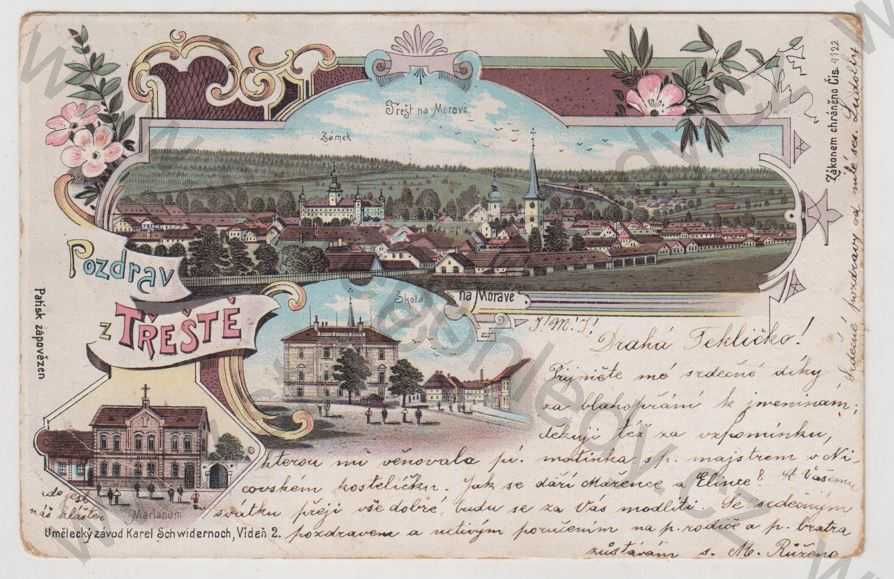 Třešť na Moravě
Zámek
Pozdrav
z TŘEŠTĚ
na Moravě
Škola
Marianum
Patisk zápovězen
Zákonem chráněno Čís. 9122
Umělecký závod Karel Schwidernoch, Vídeň 2.
Drahá Tekličko!
Přijměte mé srdečné díky
za blahopřání k jmeninám;
děkuji též za vzpomínku,
kterou mi věnovala pí. matinka s p. majstrem v
kostelíčku. Jak se daří Mařence a Elince? K Vašemu
svátku přeji vše dobré, budu se za Vás modliti. Se srdečným
pozdravem a uctivým poručením na p. rodiče a p. bratra
zůstávám s. M. Růžena
to jest
náš klášter
Srdečné pozdravy od milé ses. Ludolfy